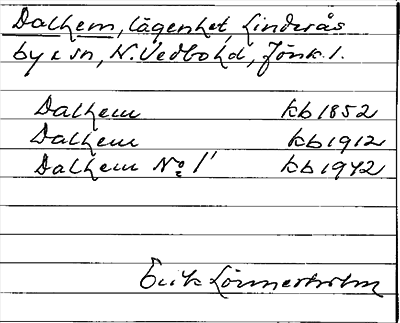 Dalhem, lägenhet, Linderås
by & sn, N. Vedbo hd, Jönk. l.
Dalhem kb 1852
Dalhem kb 1912
Dalhem No 1' kb 1942
Erik Lönnerholm